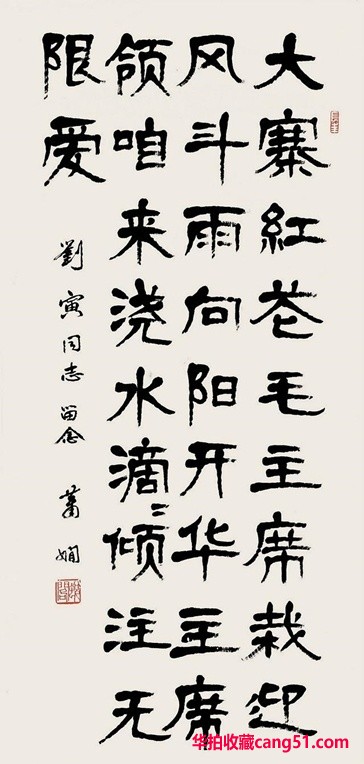 大寨紅花毛主席栽迎
风斗雨向阳开华主席
领咱来浇水滴〻倾注无
限爱
劉寅同志留念 萧嫻
华拍收藏cang51.com